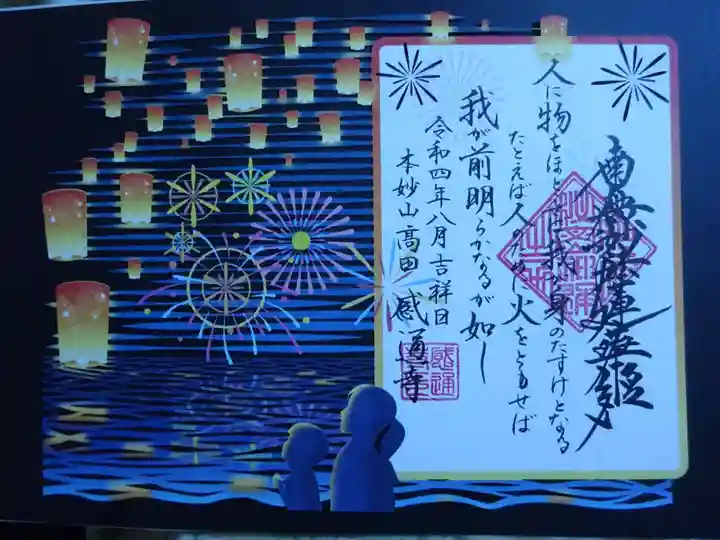 南無妙法蓮華経
人に物をほどこせば我が身のたすけとなる
たとえば人のために火をともせば
我が前明らかなるが如し
令和四年八月吉祥日
本妙山高田 感通寺